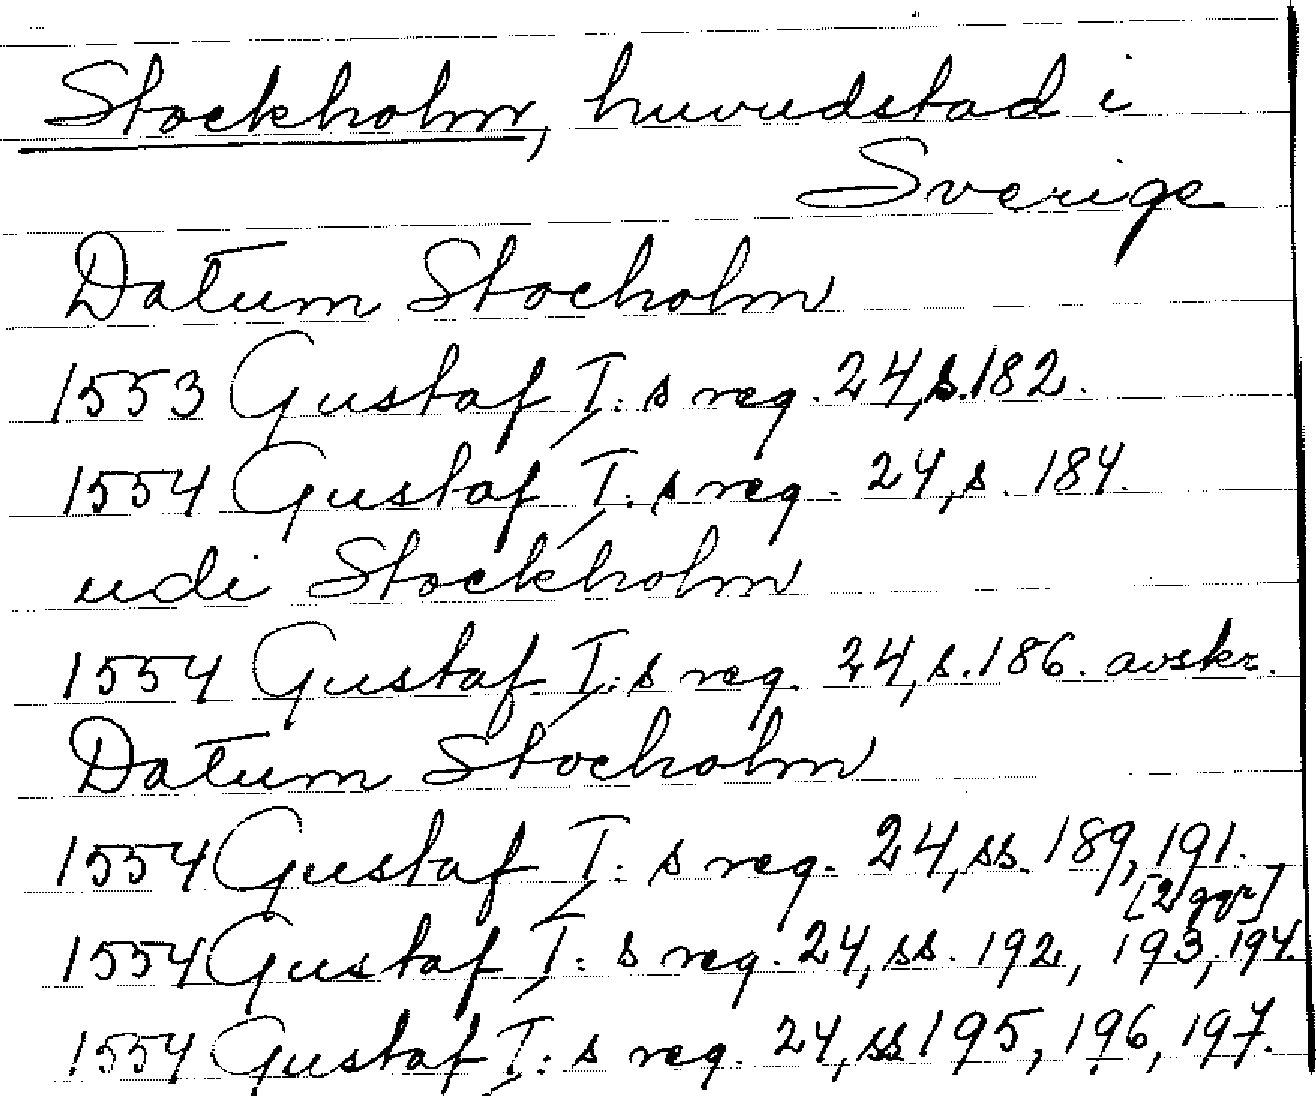 Stockholm, huvudstad i
Sverige
Datum Stocholm
1553 Gustaf I:s reg. 24, s. 182.
1554 Gustaf I:s reg. 24, s. 184.
udi Stockholm
1554 Gustaf I:s reg. 24, s. 186. avskr.
Datum Stocholm
1554 Gustaf I:s reg. 24, ss. 189, 191.
[2 ggr]
1554 Gustaf I:s reg. 24, ss. 192, 193, 194.
1554 Gustaf I:s reg. 24, ss 195, 196, 197.